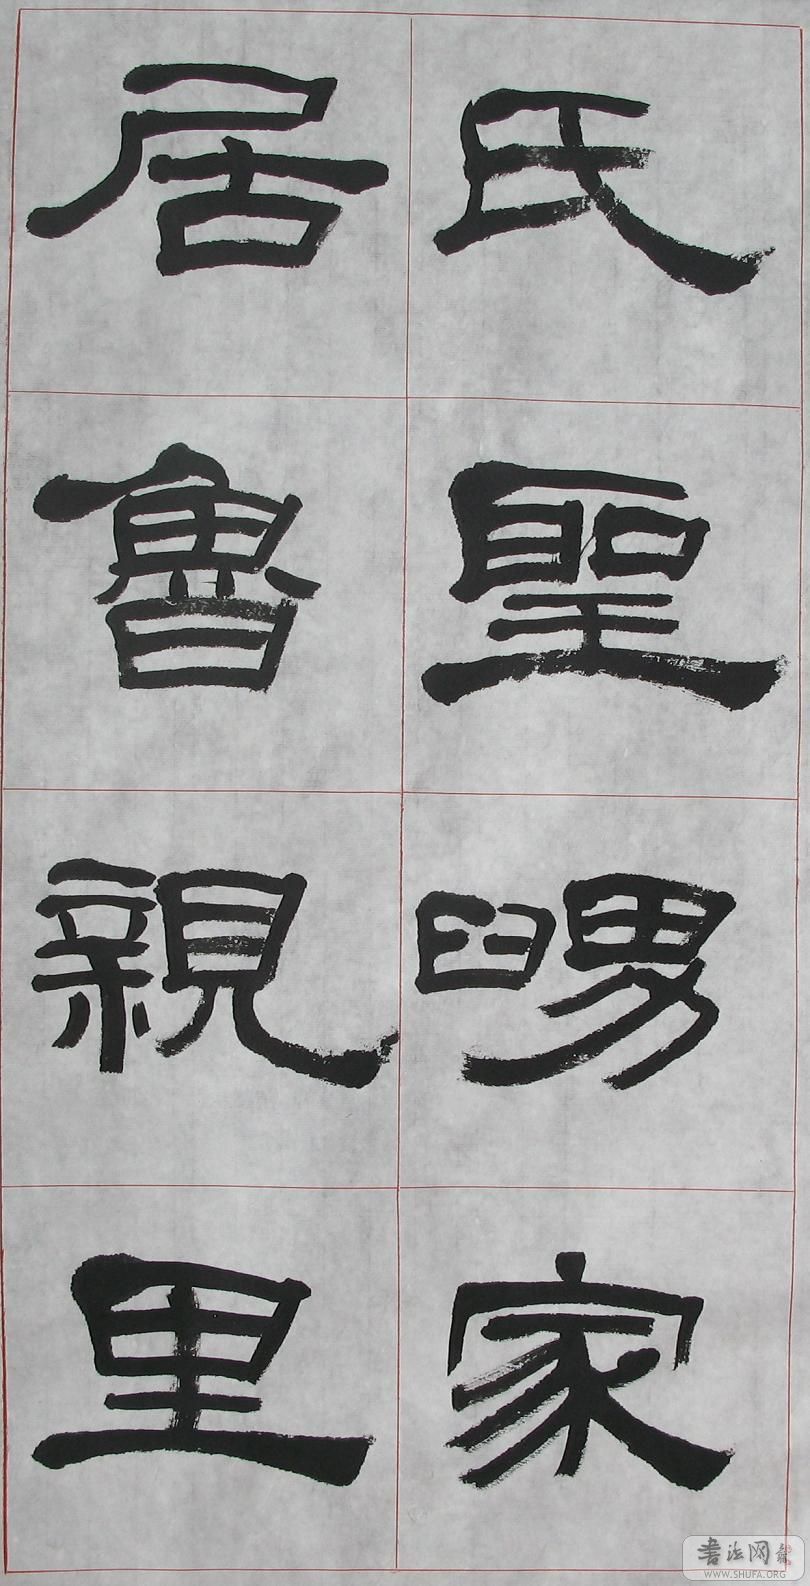 氏聖舅家
居魯親里
書法网
WWW.SHUFA.ORG